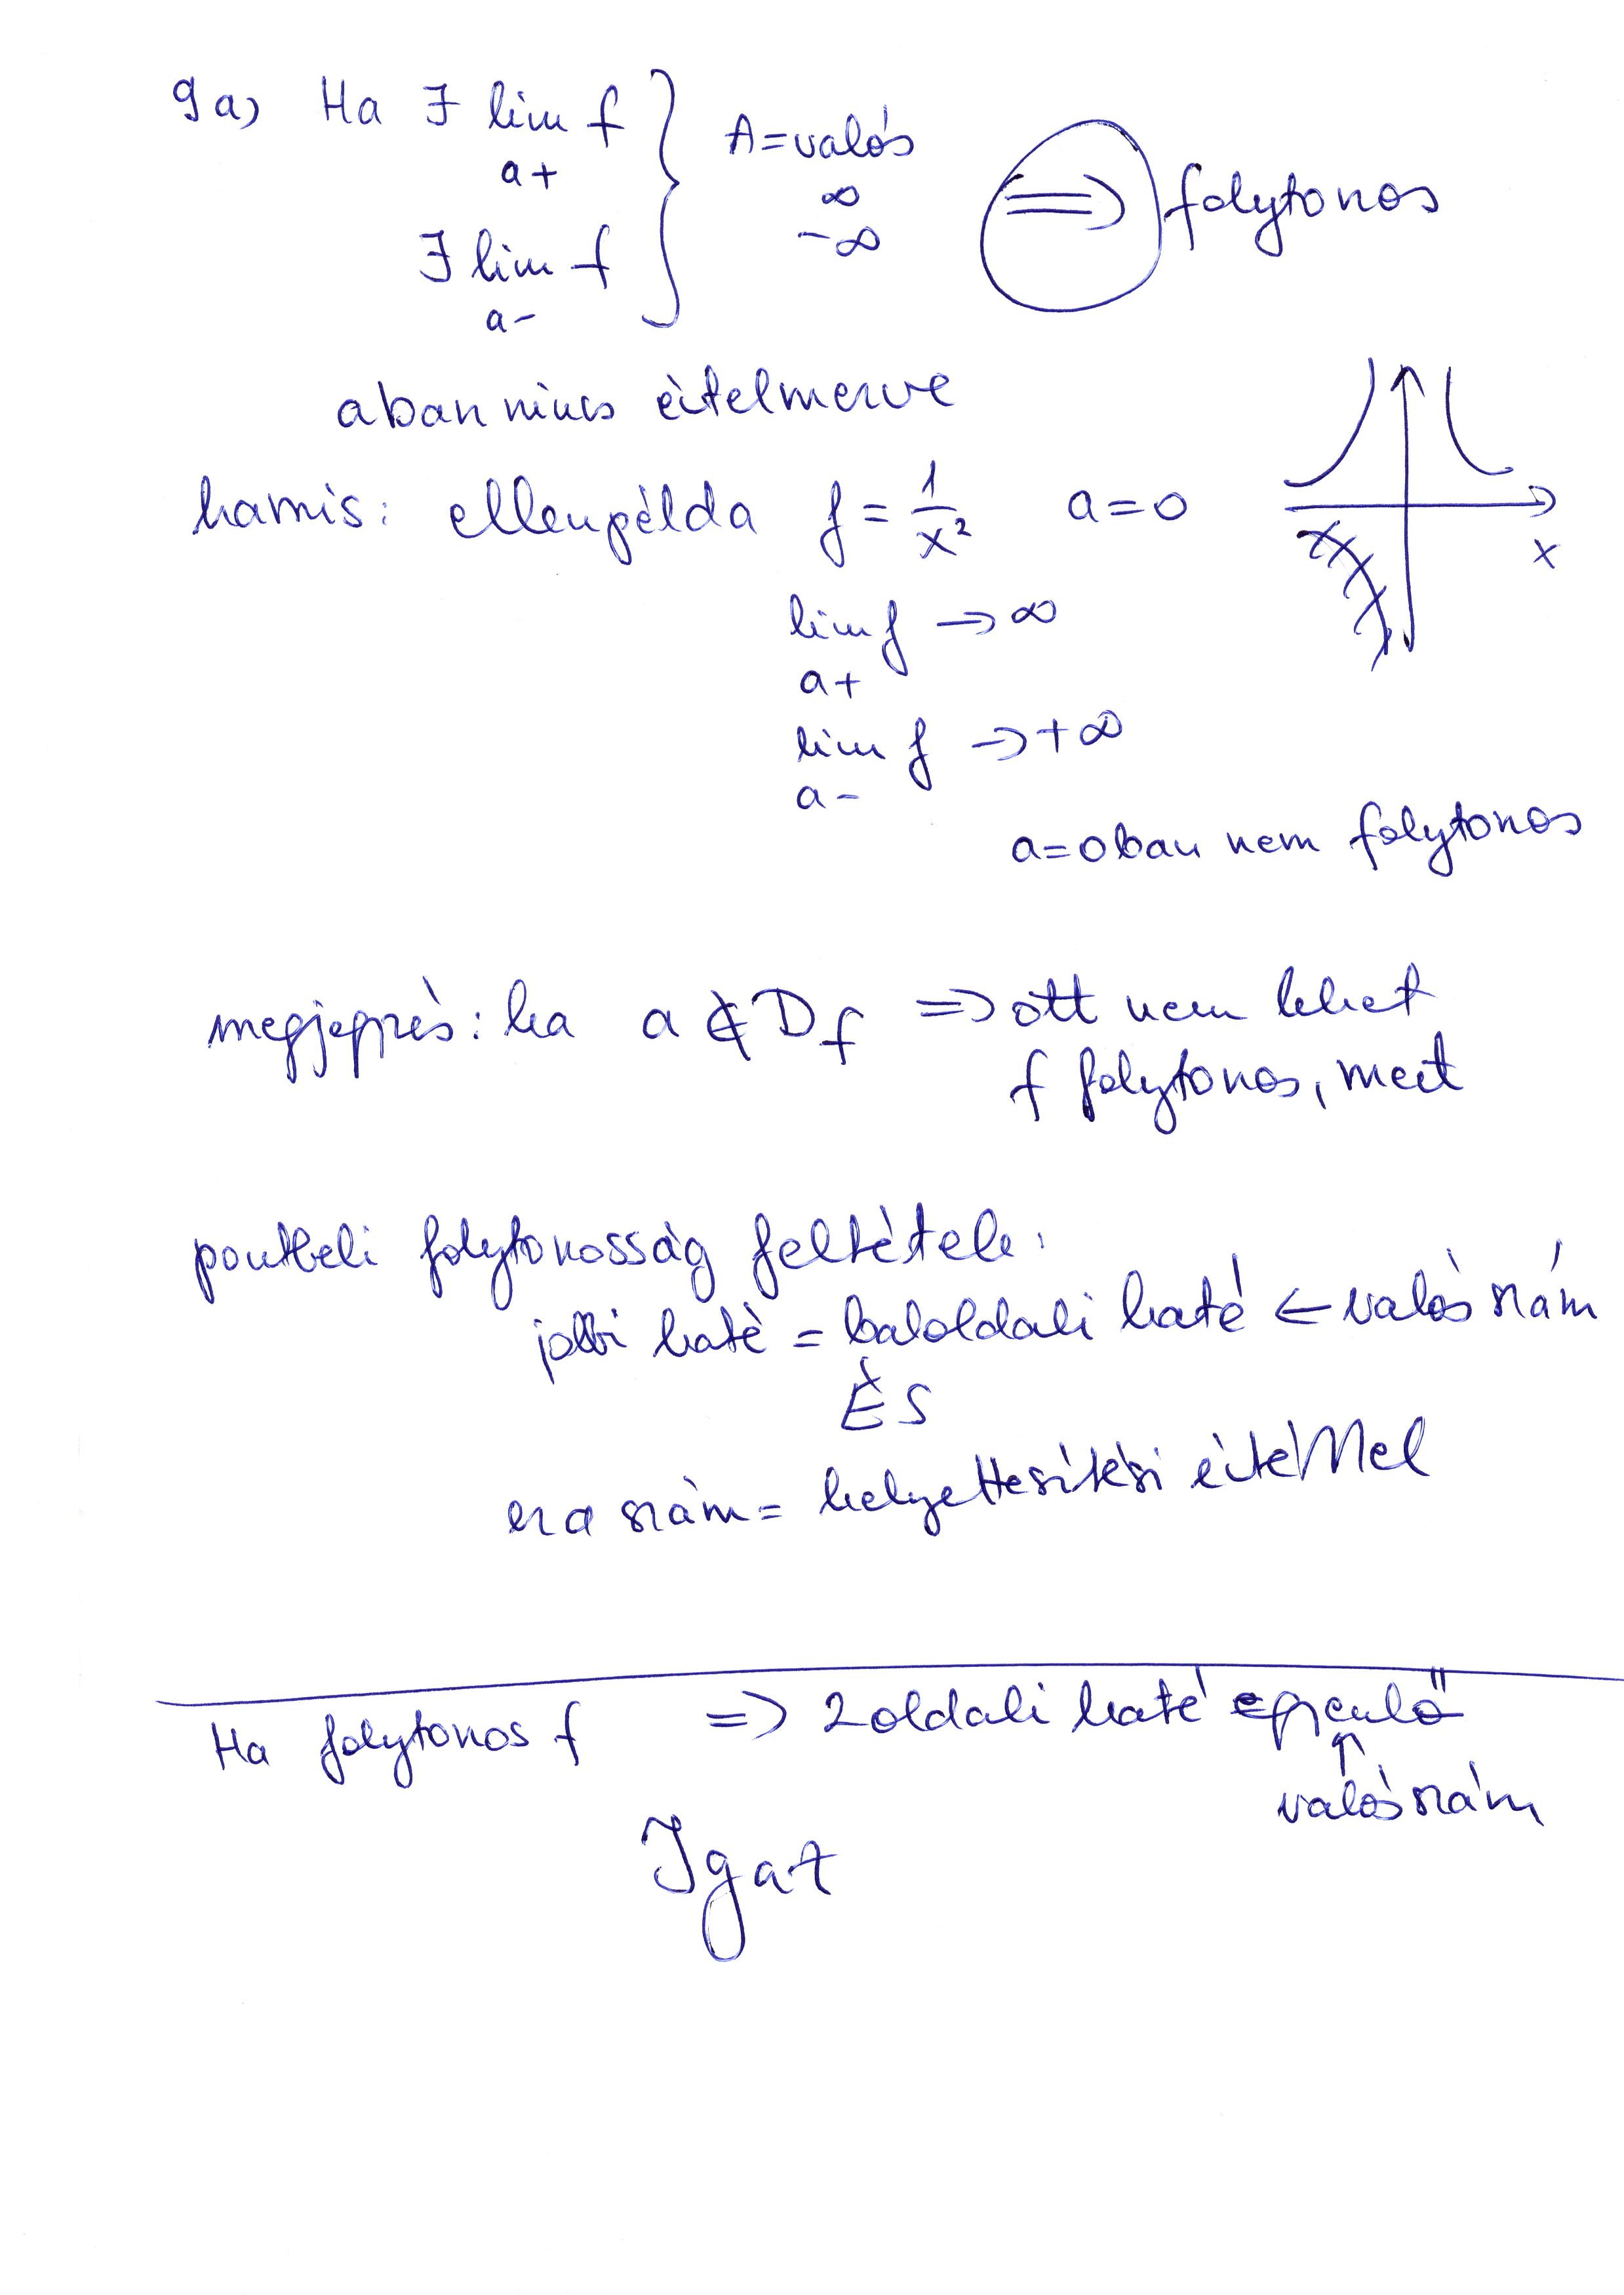 9a) Ha ∃ lim f } A=valós ⟹ folytonos
a+ ∞
∃ lim f -∞
a-
aban nincs értelmezve
hamis: ellenpélda f = 1/x² a=0
x
lim f → ∞
a+
lim f → +∞
a-
a=0ban nem folytonos
megjegyzés: ha a ∉ Df ⇒ ott nem lehet
f folytonos, mert
pontbeli folytonosság feltétele:
jobbi haté = baloldali haté ← valós szám
ÉS
ez a szám = helyettesítési értékkel
Ha folytonos f ⇒ 2 oldali haté egyenlő
↑
valós szám
Igaz